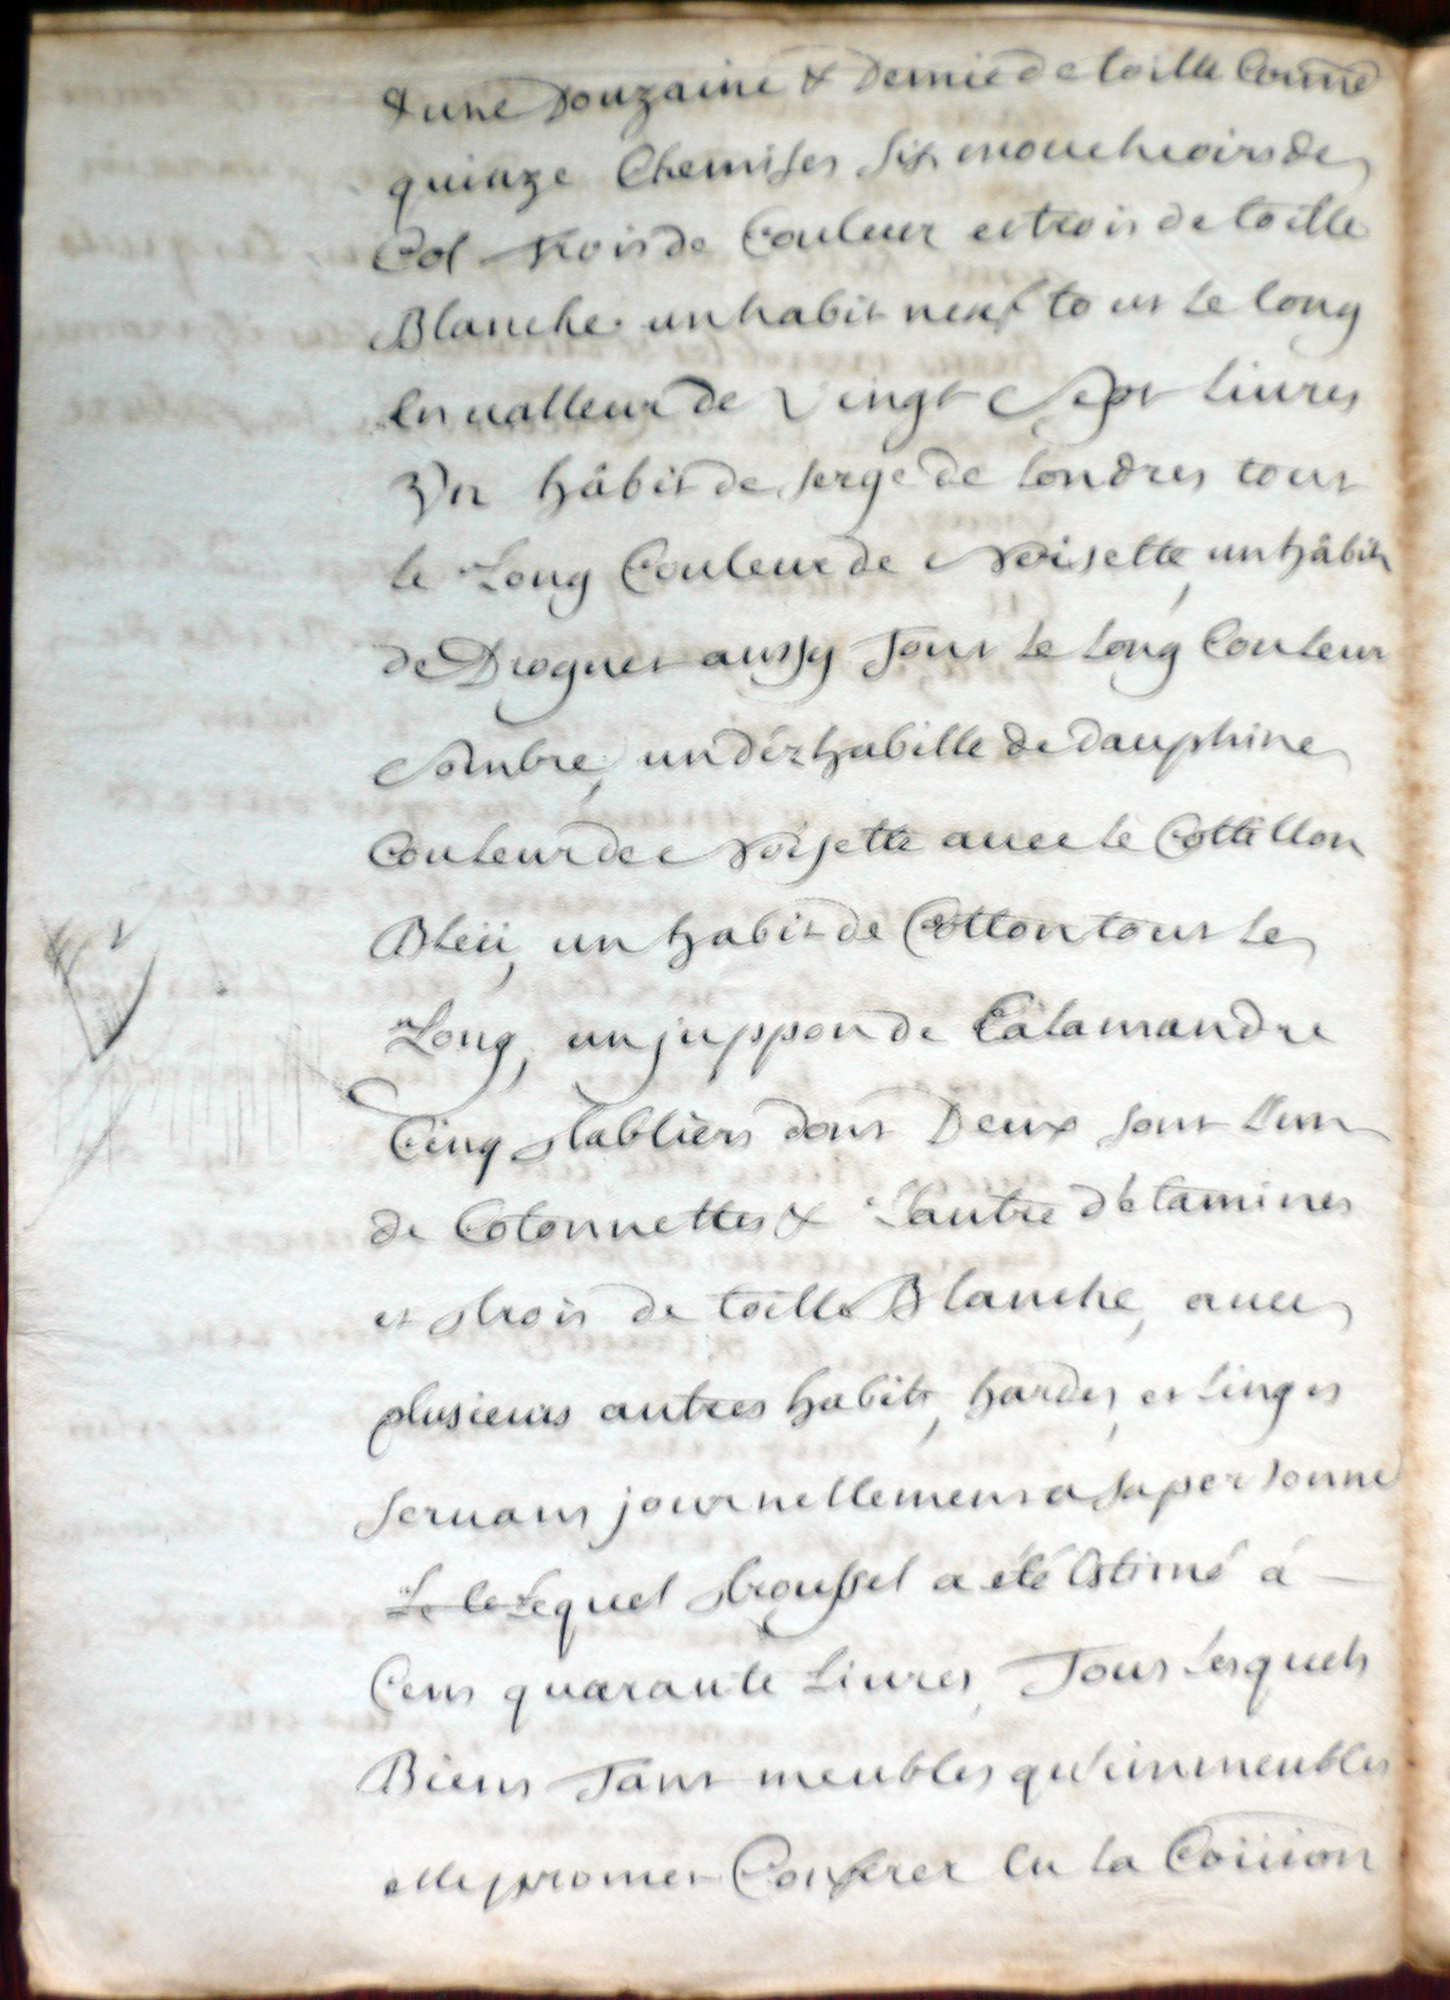 & une Douzaine & Demie de toille Comme
quinze Chemises six mouchoirs de
Col trois de Couleur et trois de toille
Blanche un habit neuf tout le long
En valleur de Vingt Sept livres
Un hâbit de serge de Londres tout
le Long Couleur de Noisette, un hâbit
de Droguet aussy Tout le Long Couleur
Sombre, un dézhabille de dauphine
Couleur de Noisette avec le Cottillon
Bleü, un habit de Cotton tout le
Long, un juppon de Calamandre
Cinq tabliers dont Deux sont l'un
de Cotonnettes & L'autre d'Etamines
et trois de toille Blanche, avec
plusieurs autres habits, hardes, et Linges
servans journellement a sa personne
Le le Lequel trousset a été Estimé à
Cent quarante Livres, Tous Lesquels
Biens Tant meubles qu'immeubles
elle promet Conferer En la Coiiion